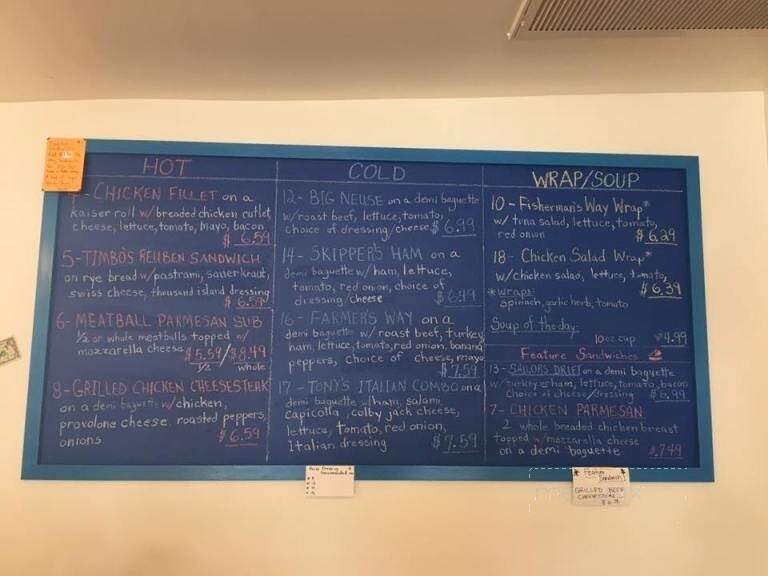 HOT
CHICKEN FILLET on a
kaiser roll w/breaded chicken cutlet,
cheese, lettuce, tomato, mayo, bacon
$ 6.59
5-TIMBO'S REUBEN SANDWICH
on rye bread w/pastrami, sauerkraut,
swiss cheese, thousand island dressing
$ 6.59
6- MEATBALL PARMESAN SUB
1/2 or whole meatballs topped w/
mozzarella cheese $5.59/$8.49
1/2 whole
8-GRILLED CHICKEN CHEESESTEAK
on a demi baguette w/chicken,
provolone cheese, roasted peppers,
onions
$ 6.59
COLD
12- BIG NEUSE on a demi baguette
w/roast beef, lettuce, tomato,
choice of dressing/cheese $ 6.99
14- SKIPPER'S HAM on a
demi baguette w/ham, lettuce,
tomato, red onion, choice of
dressing/cheese $ 6.99
16- FARMER'S WAY on a
demi baguette w/ roast beef, turkey,
ham, lettuce, tomato, red onion, banana
peppers, choice of cheese, mayo
$ 7.59
17- TONY'S ITALIAN COMBO on a
demi baguette w/ham, salami,
capicolla, colby jack cheese,
lettuce, tomato, red onion,
Italian dressing $ 7.59
WRAP/SOUP
10- Fisherman's Way Wrap*
w/ tuna salad, lettuce, tomato,
red onion $ 6.29
18- Chicken Salad Wrap*
w/chicken salad, lettuce, tomato,
$ 6.39
*Wraps:
spinach, garlic herb, tomato
Soup of the day:
10 oz cup 4.99
Feature Sandwiches
13- SAILORS DRIFT on a demi baguette
w/turkey & ham, lettuce, tomato, bacon
choice of cheese/dressing $ 6.99
7- CHICKEN PARMESAN
2 whole breaded chicken breast
topped w/mozzarella cheese
on a demi baguette $ 7.49
* Feature *
Sandwich
GRILLED BEEF